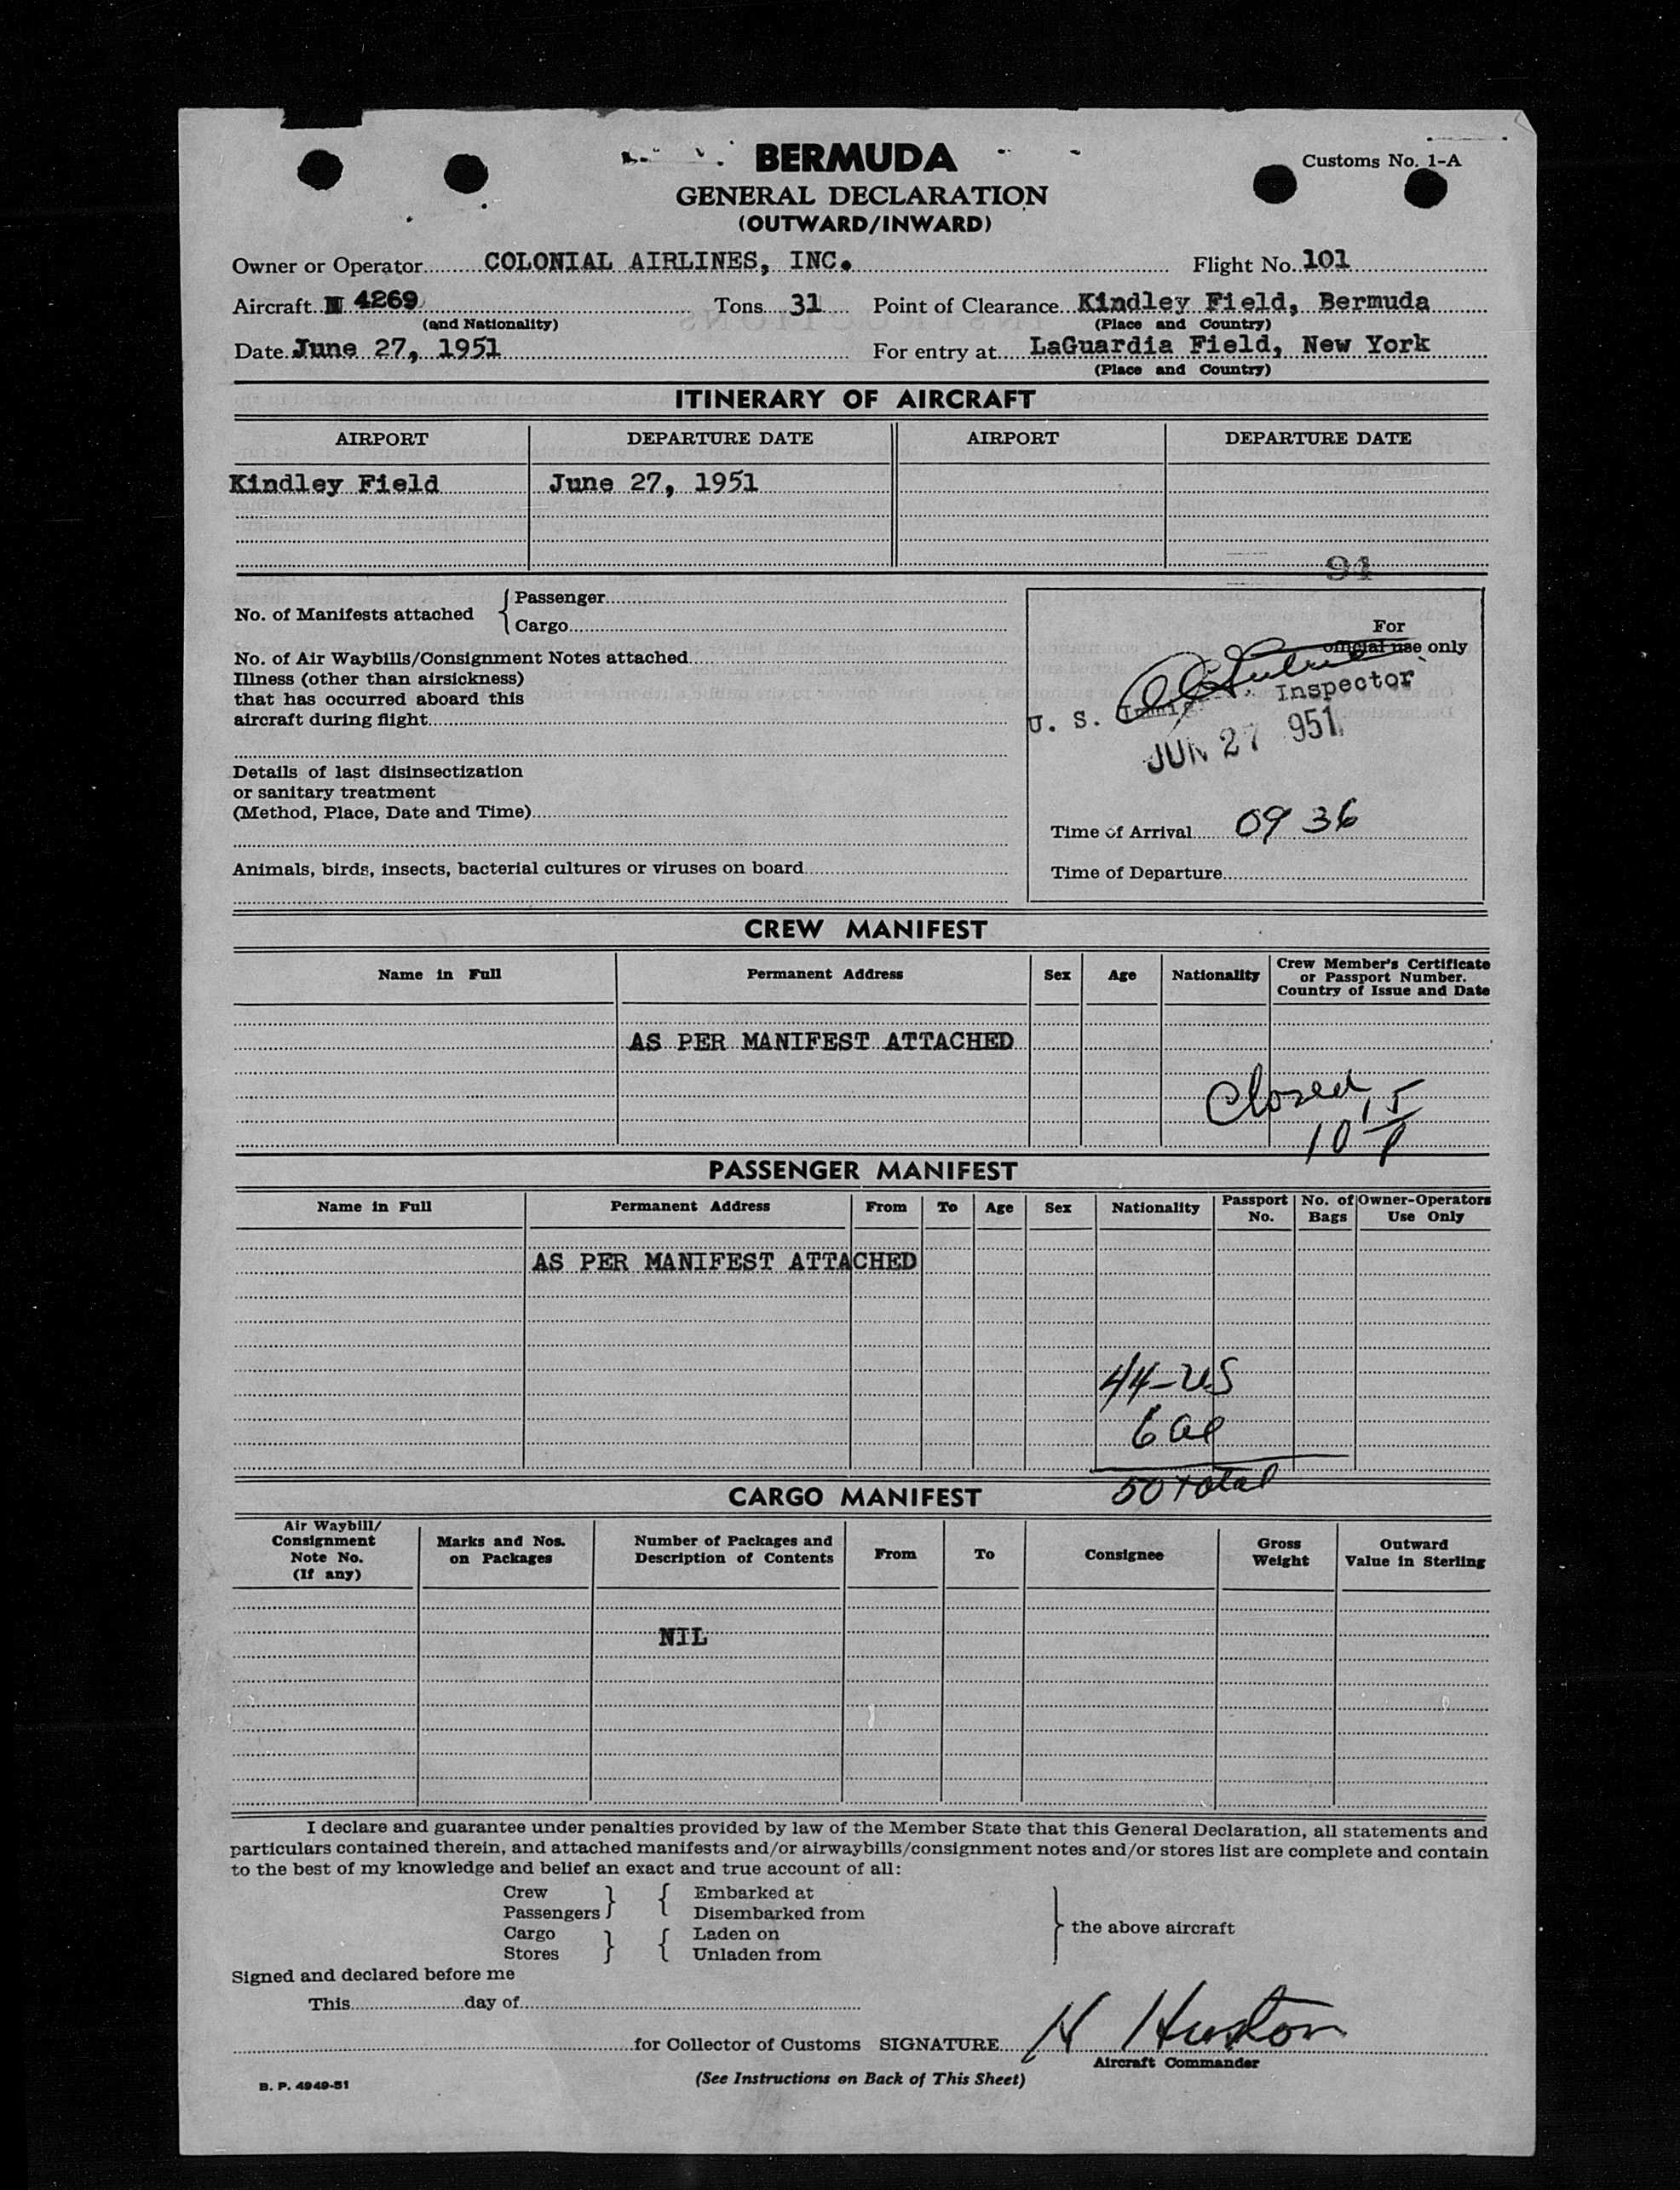 BERMUDA
Customs No. 1-A
GENERAL DECLARATION
(OUTWARD/INWARD)
Owner or Operator COLONIAL AIRLINES, INC. Flight No. 101
Aircraft N 4269 Tons 31 Point of Clearance Kindley Field, Bermuda
(and Nationality) (Place and Country)
Date June 27, 1951 For entry at LaGuardia Field, New York
(Place and Country)
ITINERARY OF AIRCRAFT
AIRPORT DEPARTURE DATE AIRPORT DEPARTURE DATE
Kindley Field June 27, 1951
94
No. of Manifests attached { Passenger
Cargo
For
official use only
No. of Air Waybills/Consignment Notes attached
Illness (other than airsickness)
that has occurred aboard this
aircraft during flight
U. S. Immig. Inspector
JUN 27 951
Details of last disinsectization
or sanitary treatment
(Method, Place, Date and Time)
Time of Arrival 09 36
Animals, birds, insects, bacterial cultures or viruses on board
Time of Departure
CREW MANIFEST
Name in Full Permanent Address Sex Age Nationality Crew Member's Certificate
or Passport Number.
Country of Issue and Date
AS PER MANIFEST ATTACHED
Closed
10 15
PASSENGER MANIFEST
Name in Full Permanent Address From To Age Sex Nationality Passport No. No. of Bags Owner-Operators Use Only
AS PER MANIFEST ATTACHED
44-US
6 al
50 total
CARGO MANIFEST
Air Waybill/
Consignment
Note No.
(If any)
Marks and Nos.
on Packages
Number of Packages and
Description of Contents
From To Consignee
Gross
Weight
Outward
Value in Sterling
NIL
I declare and guarantee under penalties provided by law of the Member State that this General Declaration, all statements and
particulars contained therein, and attached manifests and/or airwaybills/consignment notes and/or stores list are complete and contain
to the best of my knowledge and belief an exact and true account of all:
Crew } { Embarked at
Passengers Disembarked from
} the above aircraft
Cargo } { Laden on
Stores Unladen from
Signed and declared before me
This day of
for Collector of Customs SIGNATURE H Huston
Aircraft Commander
B. P. 4949-51
(See Instructions on Back of This Sheet)